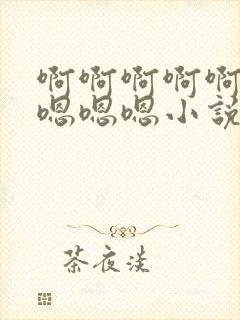 啊啊啊啊啊
嗯嗯嗯小说
茶夜淡